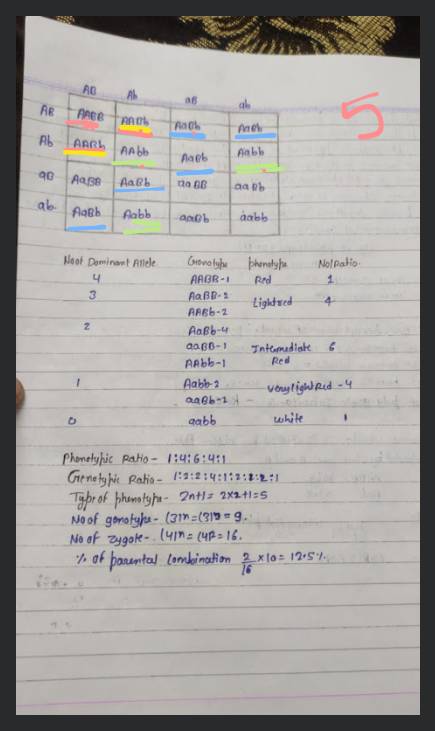 AB Ab aB ab
5
AB AABB AABb AaBb AaBb
Ab AABb AAbb AaBb Aabb
aB AaBB AaBb aaBB aaBb
ab AaBb Aabb aaBb aabb
No of Dominant Allele. Genotype phenotype No/Ratio.
4 AABB-1 Red 1
3 AaBB-2 Lightred 4
AABb-2
2 AaBb-4
aaBB-1 Intermediate 6
AAbb-1 Red
1 Aabb-2 verylightRed -4
aaBb-2
0 aabb white 1
Phenotypic Ratio- 1:4:6:4:1
Genotypic Ratio- 1:2:2:4:1:2:2:2:1
Type of phenotype- 2n+1= 2x2+1=5
No of genotype- (3)n=(3)2= 9.
No of zygote- (4)n= (4)2= 16.
% of parental combination 2/16 x10= 12.5%.